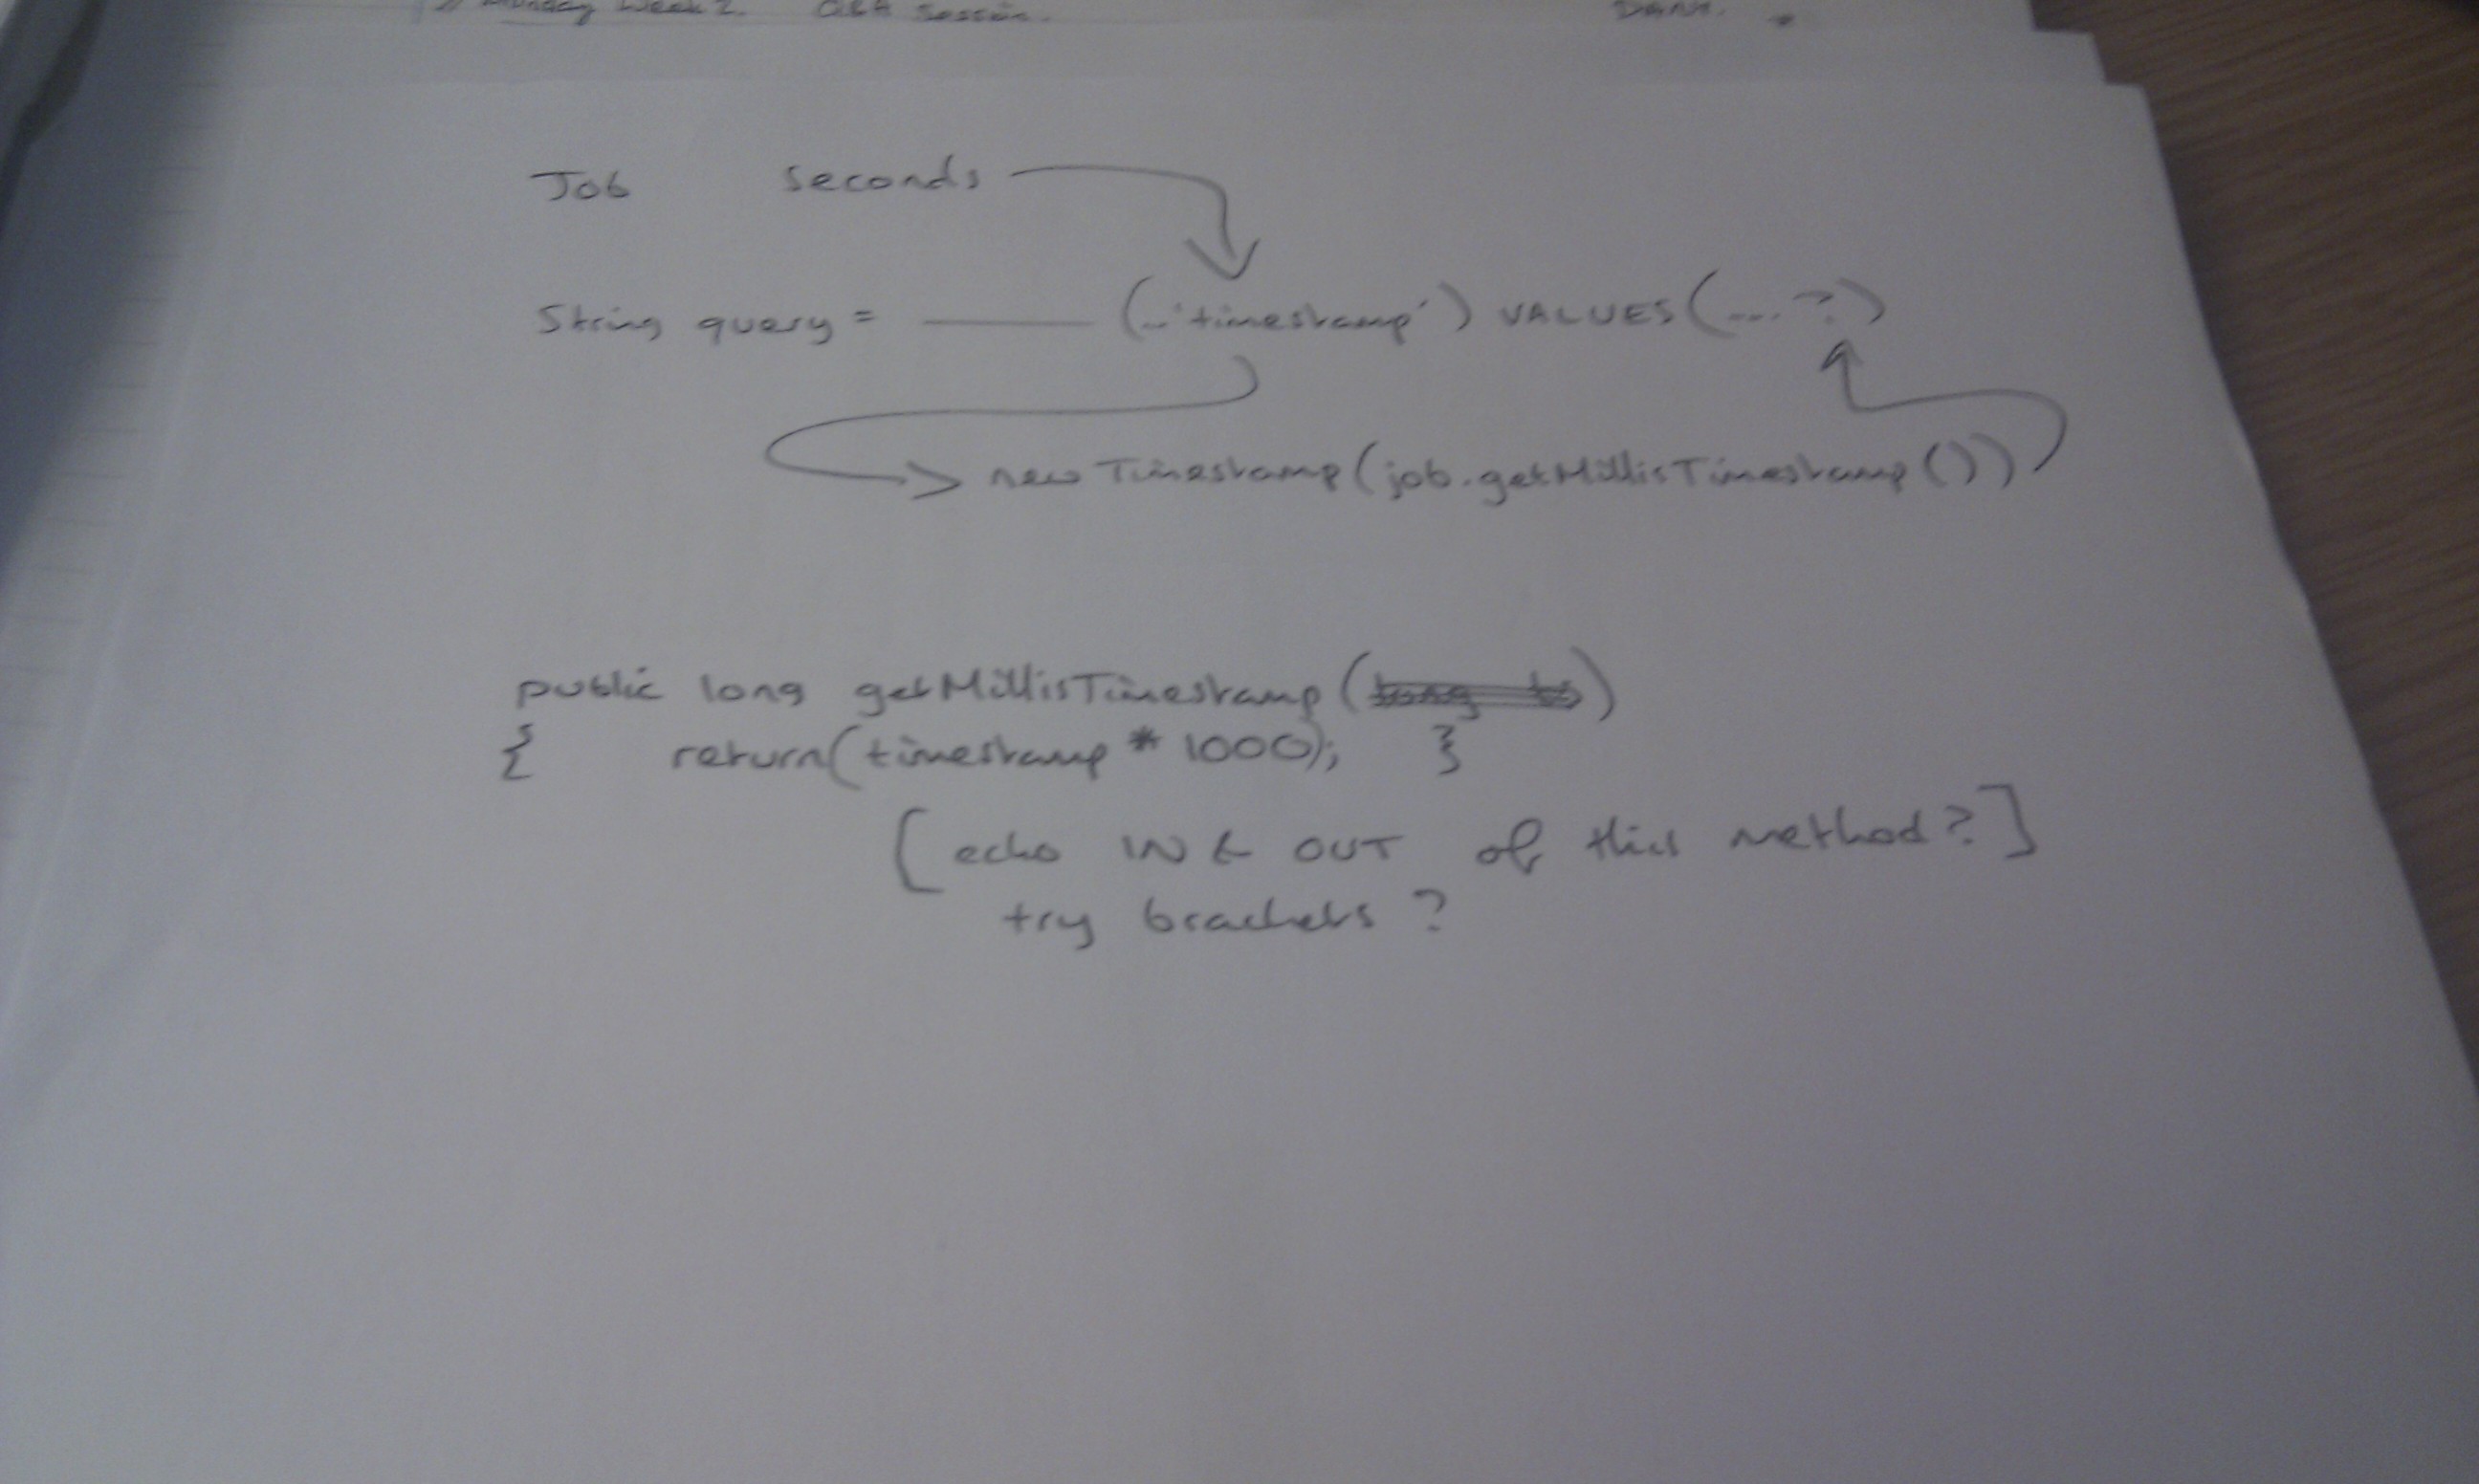 Monday Week 2. Q&A Session.
Job seconds
String query = (...'timestamp') VALUES (....?)
new Timestamp(job.getMillisTimestamp())
public long getMillisTimestamp(long ts)
{ return(timestamp * 1000); }
[echo IN & OUT of this method?]
try brackets?